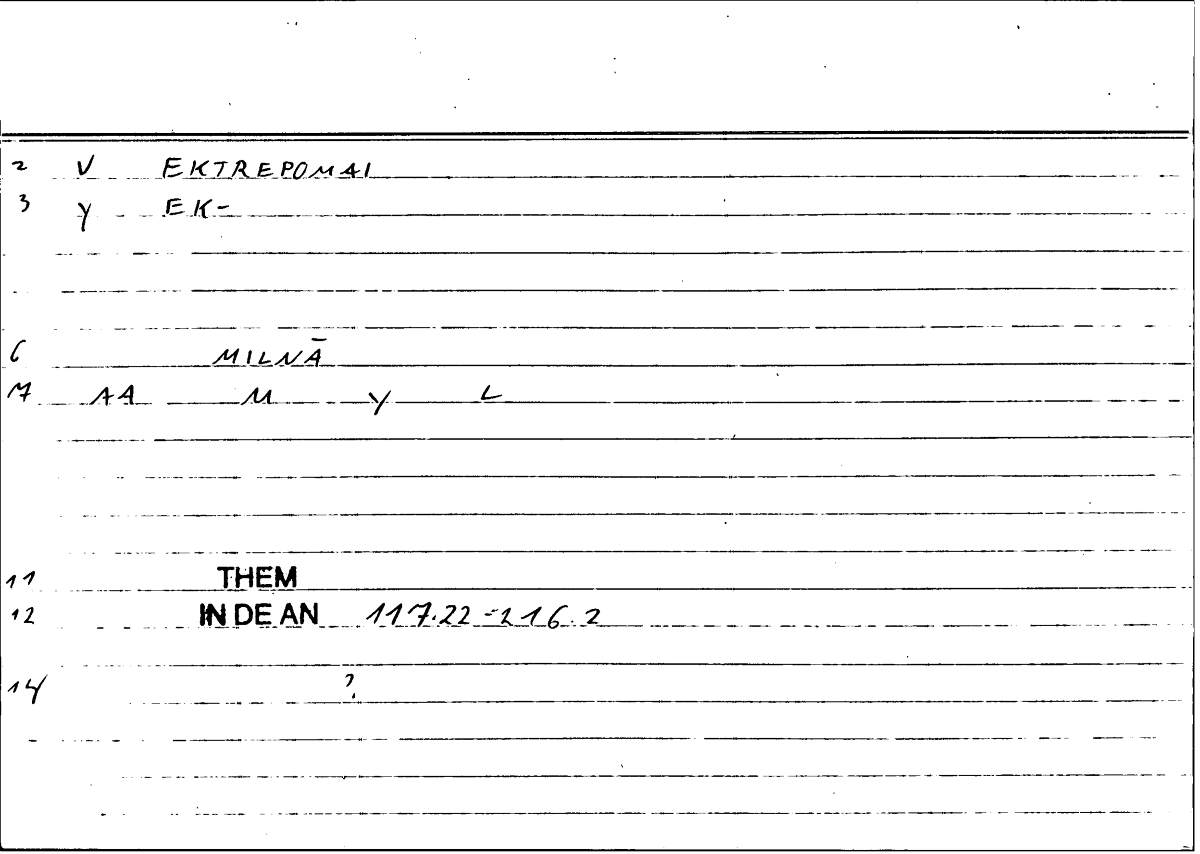 2 V EKTREPOMAI
3 Y EK-
6 MILNĀ
7 AA M Y L
11 THEM
12 IN DE AN 117.22 = 216.2
14 ?